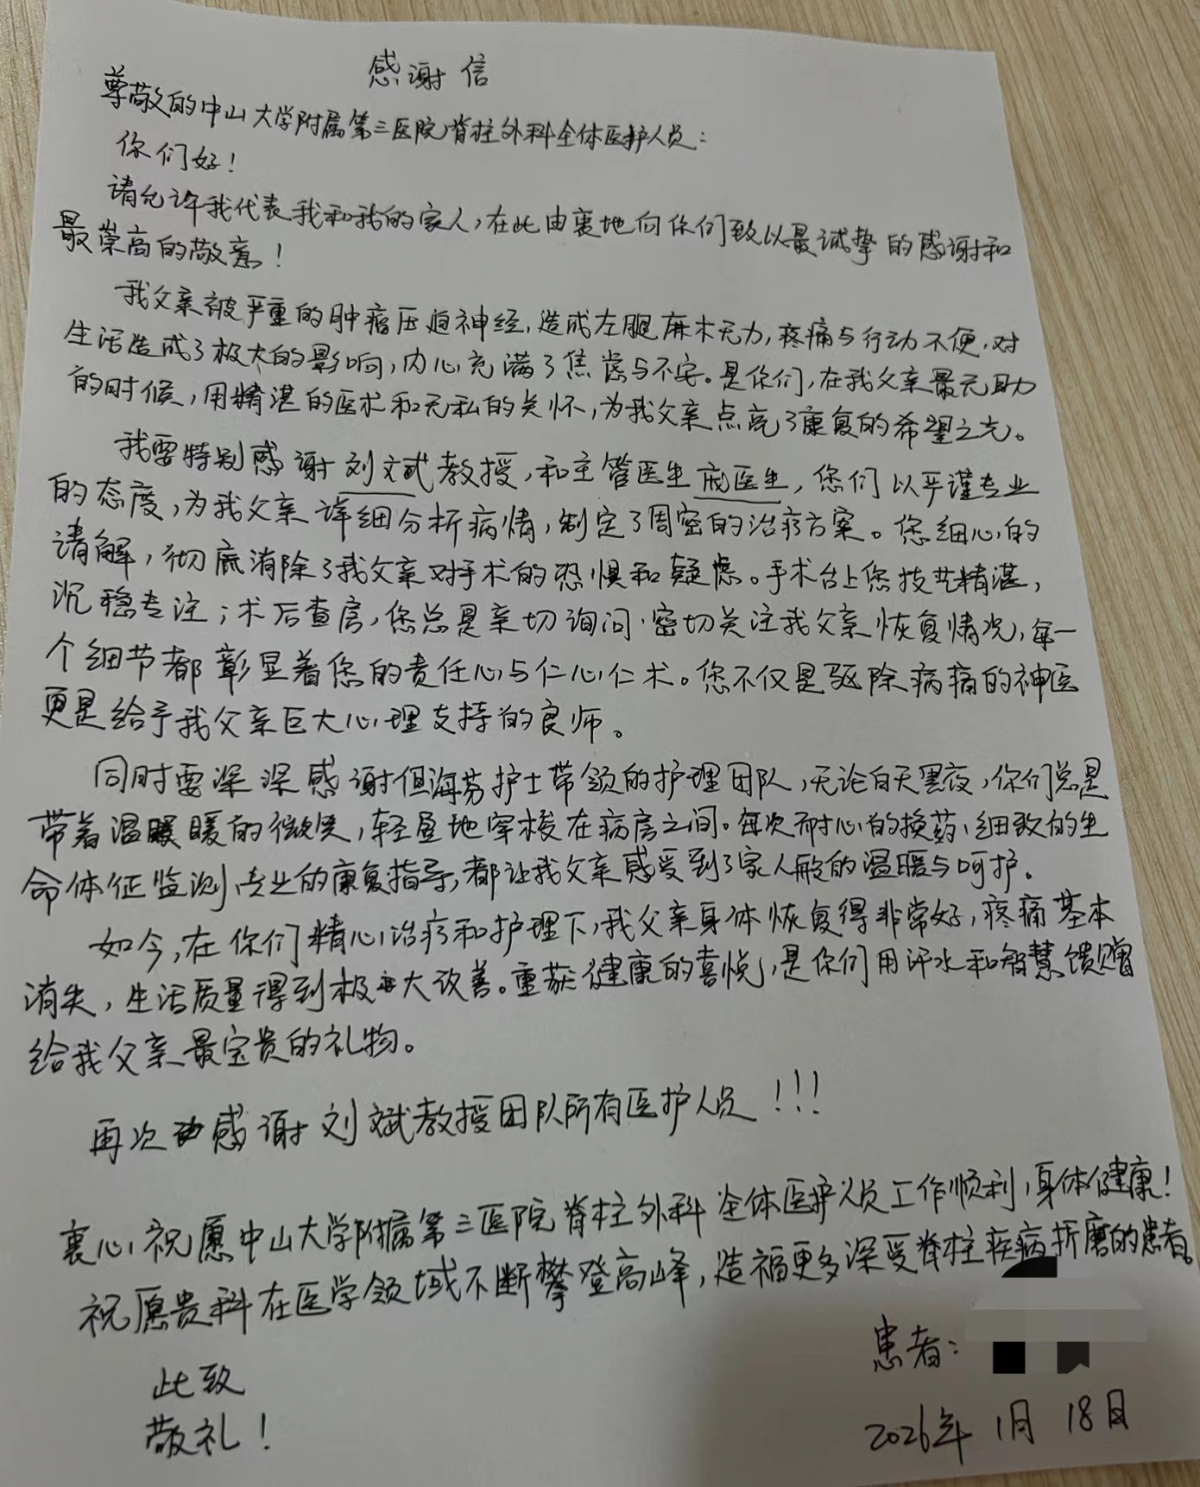 感谢信
尊敬的中山大学附属第三医院脊柱外科全体医护人员:
你们好!
请允许我代表我和我的家人,在此由衷地向你们致以最诚挚的感谢和
最崇高的敬意!
我父亲被严重的肿瘤压迫神经,造成左腿麻木无力,疼痛与行动不便,对
生活造成了极大的影响,内心充满了焦虑与不安。是你们,在我父亲最无助
的时候,用精湛的医术和无私的关怀,为我父亲点亮了康复的希望之光。
我要特别感谢刘文斌教授,和主管医生成医生,您们以严谨专业
的态度,为我父亲详细分析病情,制定了周密的治疗方案。您细心的
请解,彻底消除了我父亲对手术的恐惧和疑虑。手术台上您技艺精湛,
沉稳专注;术后查房,您总是亲切询问,密切关注我父亲恢复情况,每一
个细节都彰显着您的责任心与仁心仁术。您不仅是驱除病痛的神医
更是给予我父亲巨大心理支持的良师。
同时要深深感谢但海芬护士带领的护理团队,无论白天黑夜,你们总是
带着温暖的微笑,轻盈地穿梭在病房之间。每次耐心的换药、细致的生
命体征监测、专业的康复指导,都让我父亲感受到了家人般的温暖与呵护。
如今,在你们精心治疗和护理下,我父亲身体恢复得非常好,疼痛基本
消失,生活质量得到极大改善。重获健康的喜悦,是你们用汗水和智慧馈赠
给我父亲最宝贵的礼物。
再次感谢刘斌教授团队所有医护人员!!!
衷心祝愿中山大学附属第三医院脊柱外科全体医护人员工作顺利,身体健康!
祝愿贵科在医学领域不断攀登高峰,造福更多深受脊柱疾病折磨的患者。
患者:
此致
敬礼!
2026年1月18日